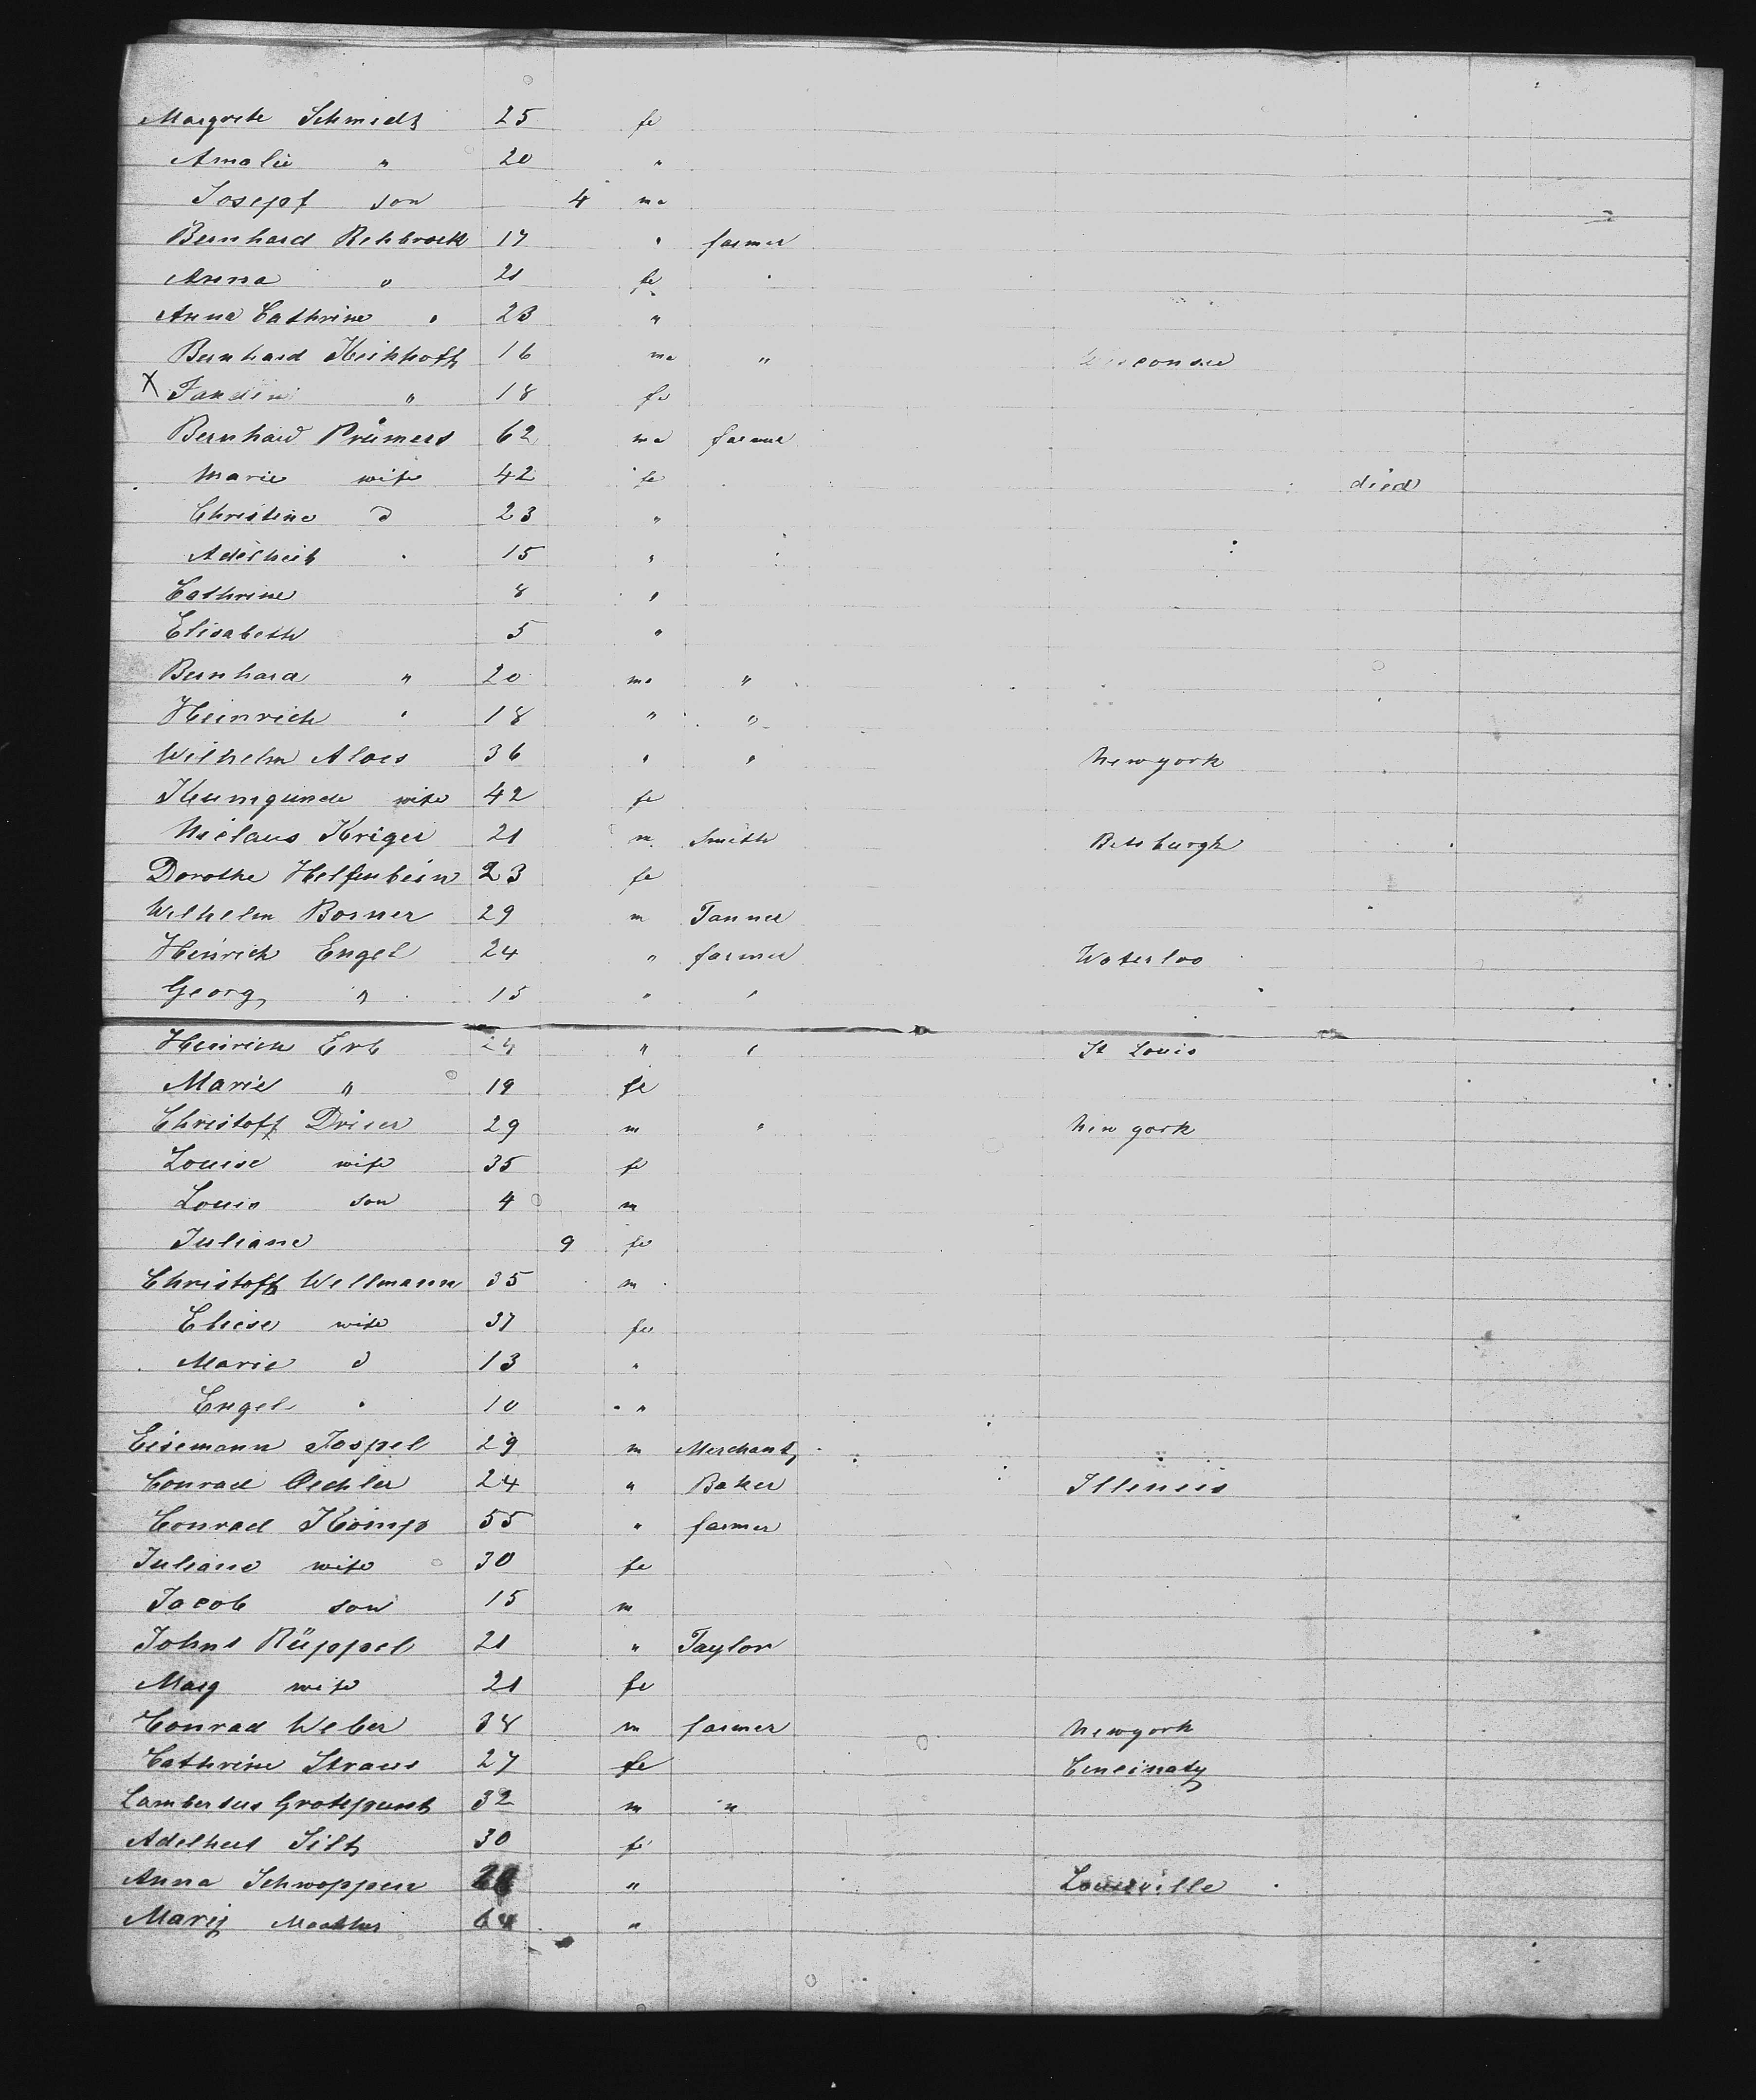 Margrete Schmidt 25 fe
Amalie " 20 "
Josepf son 4 ma
Bernhard Rehbrock 17 " farmer
Anna " 21 fe
Anna Cathrine " 23 "
Bernhard Kerkhoff 16 ma " Wisconsin
X " 18 fe
Bernhard Prümers 62 ma farmer
Marie wife 42 fe died
Christine d 23 "
Adelheit " 15 "
Cathrine 8 "
Elisabeth 5 "
Bernhard " 20 ma "
Heinrich " 18 " "
Wilhelm Alois 36 " " Newyork
Kunngunde wife 42 fe
Niclaus Kriger 21 m Smith Betsburgh
Dorothe Helfenbein 23 fe
Wilhelm Borner 29 m Tanner
Heinrich Engel 24 " farmer Waterloo
Georg " 15 " "
Heinrich Erb 24 " " St Louis
Marie " 19 fe
Christoff Drier 29 m " New york
Louise wife 35 fe
Louis son 4 m
Juliane 9 fe
Christoff Wellmann 35 m
Eliese wife 37 fe
Marie d 13 "
Engel " 10 "
Eisemann Jospel 29 m Merchant
Conrad Oechler 24 " Baker Illinois
Conrad Komp 55 " farmer
Juliane wife 30 fe
Jacob son 15 m
Johns Rüppel 21 " Taylor
Marg wife 21 fe
Conrad Weber 38 m farmer Newyork
Cathrine Straus 27 fe Cincinaty
Lambertus Grotepunt 32 m "
Adelheit Silt 30 fe
Anna Schwoppen " Louisville
Marij 64 "